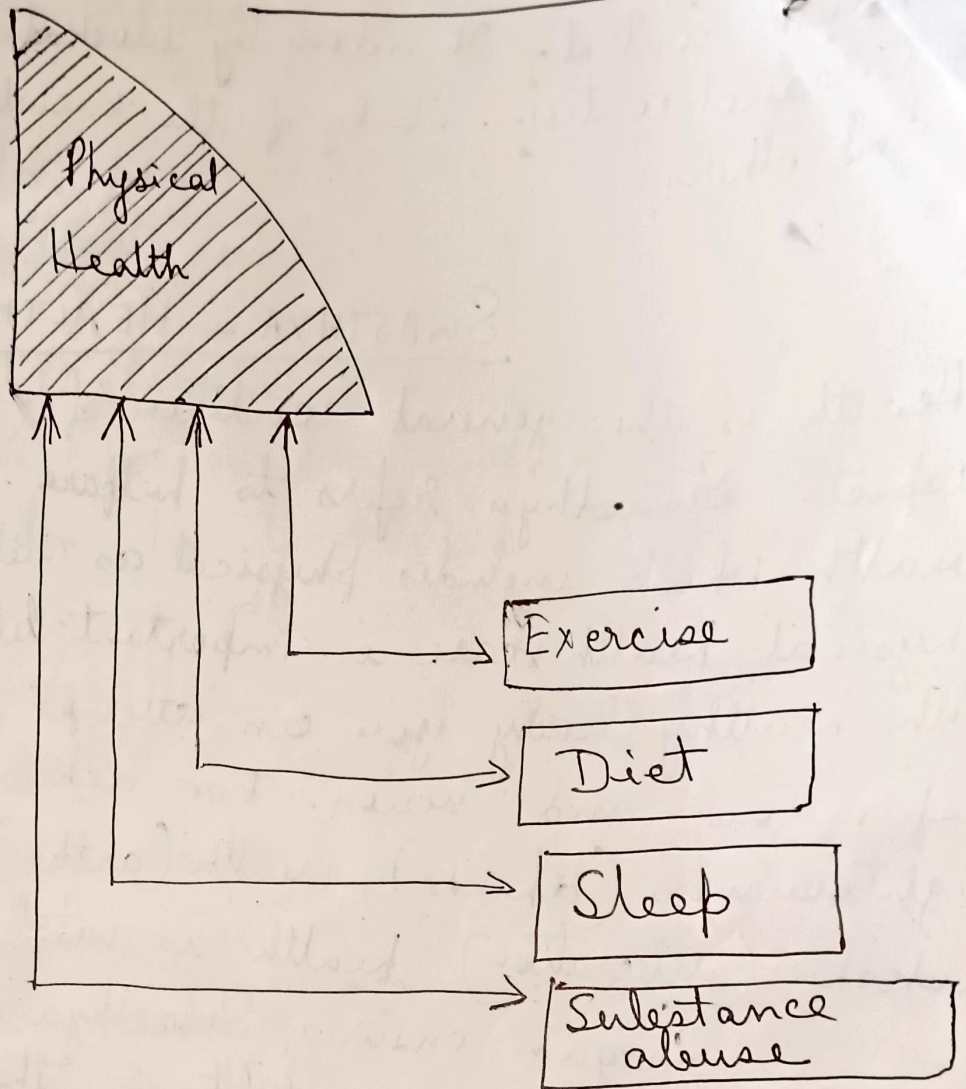 Physical
Health
Exercise
Diet
Sleep
Substance
abuse